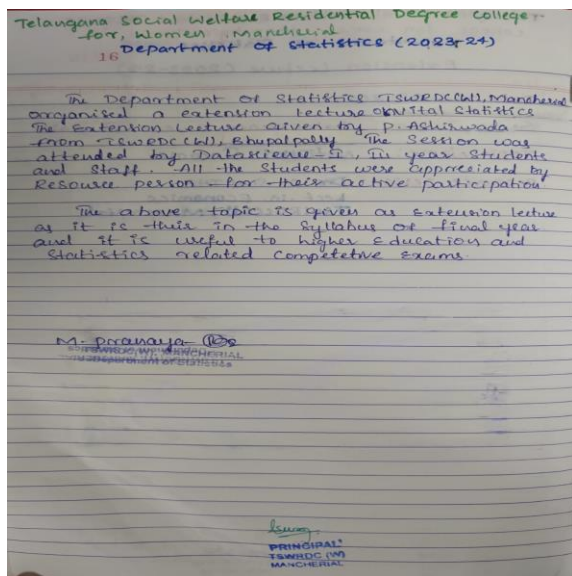 Telangana Social Welfare Residential Degree College
for, Women, Mancherial
Department of Statistics (2023-24)
16
The Department of Statistics TSWRDC(W), Mancherial
organised a extension lecture on Vital Statistics
The Extension Lecture given by P. Ashirwada
from TSWRDC(W), Bhupalpally The Session was
attended by Datascience-I, III year Students
and Staff. All the Students were appreciated by
Resource person for their active participation
The above topic is given as extension lecture
as it is their in the Syllabus of final year
and it is useful to higher Education and
Statistics related Competetive Exams.
M. Pranaya
TSWRDC(W), MANCHERIAL
Department of Statistics
PRINCIPAL
TSWRDC (W)
MANCHERIAL